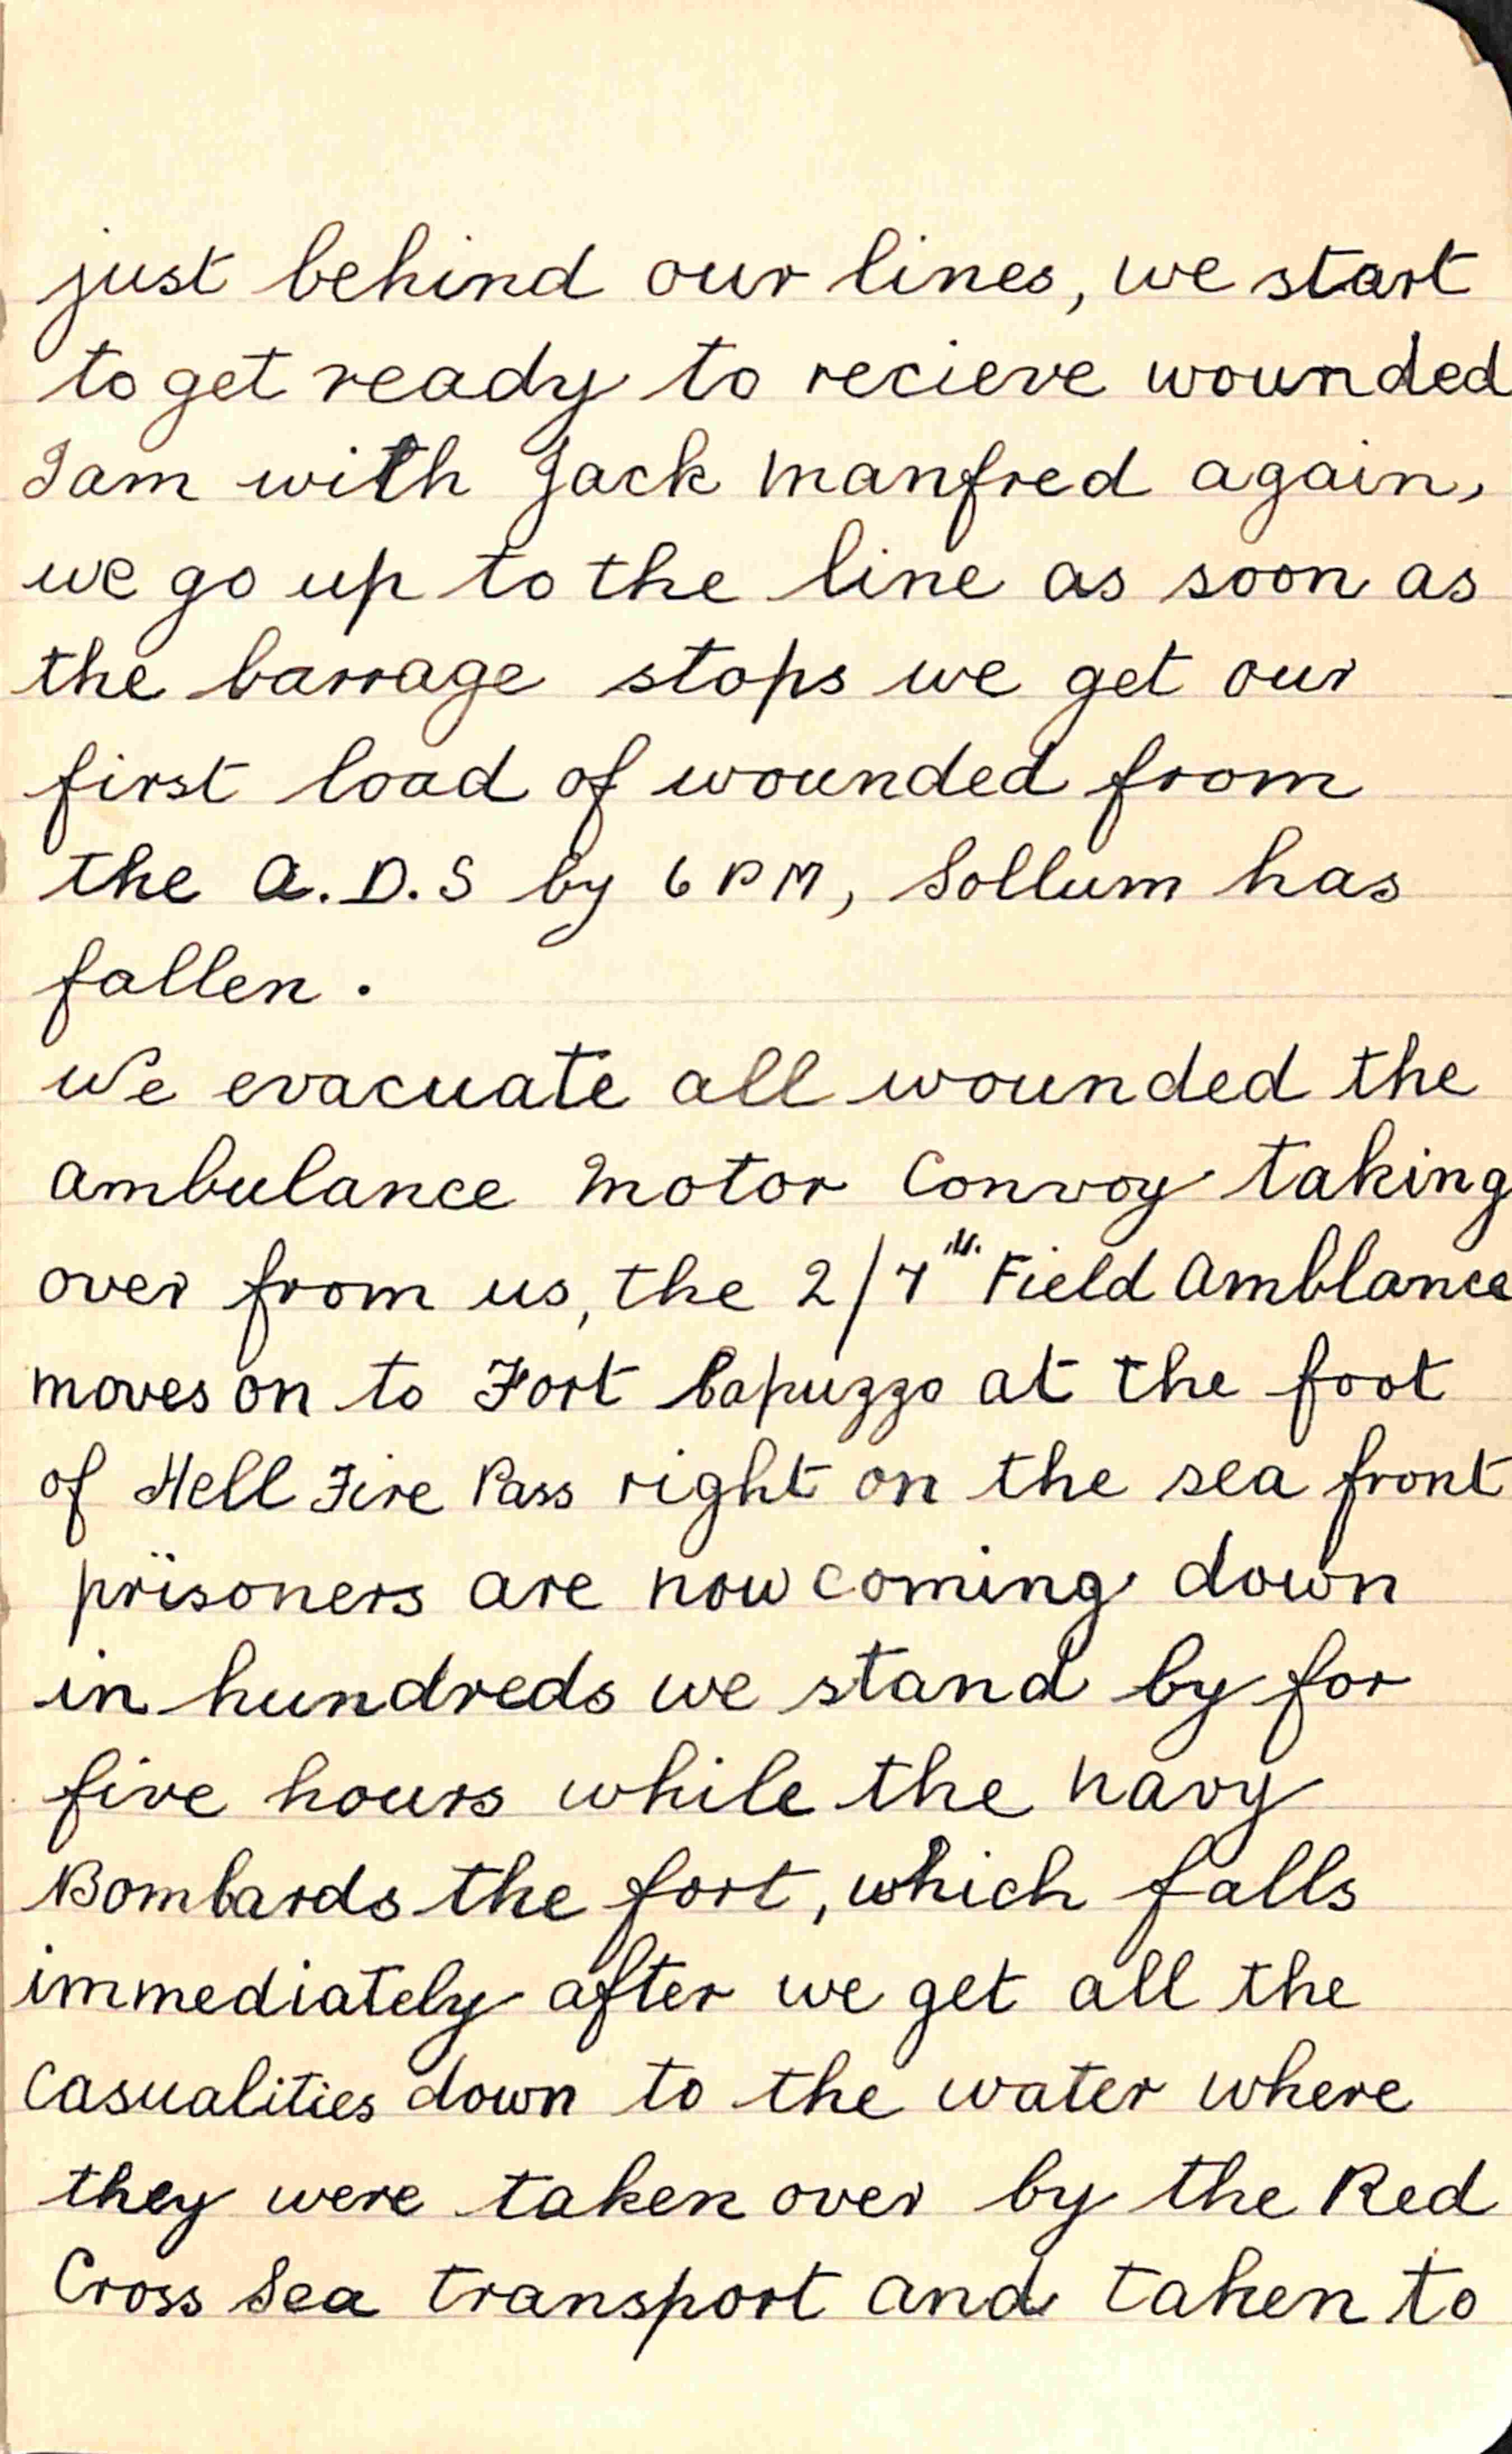 just behind our lines, we start
to get ready to recieve wounded
I am with Jack Manfred again,
we go up to the line as soon as
the barrage stops we get our
first load of wounded from
the A.D.S by 6 PM, Sollum has
fallen.
We evacuate all wounded the
Ambulance Motor Convoy taking
over from us, the 2/7th Field Amblance
moves on to Fort Capuzzo at the foot
of Hell Fire Pass right on the sea front
prisoners are now coming down
in hundreds we stand by for
five hours while the navy
Bombards the fort, which falls
immediately after we get all the
Casualities down to the water where
they were taken over by the Red
Cross Sea transport and taken to